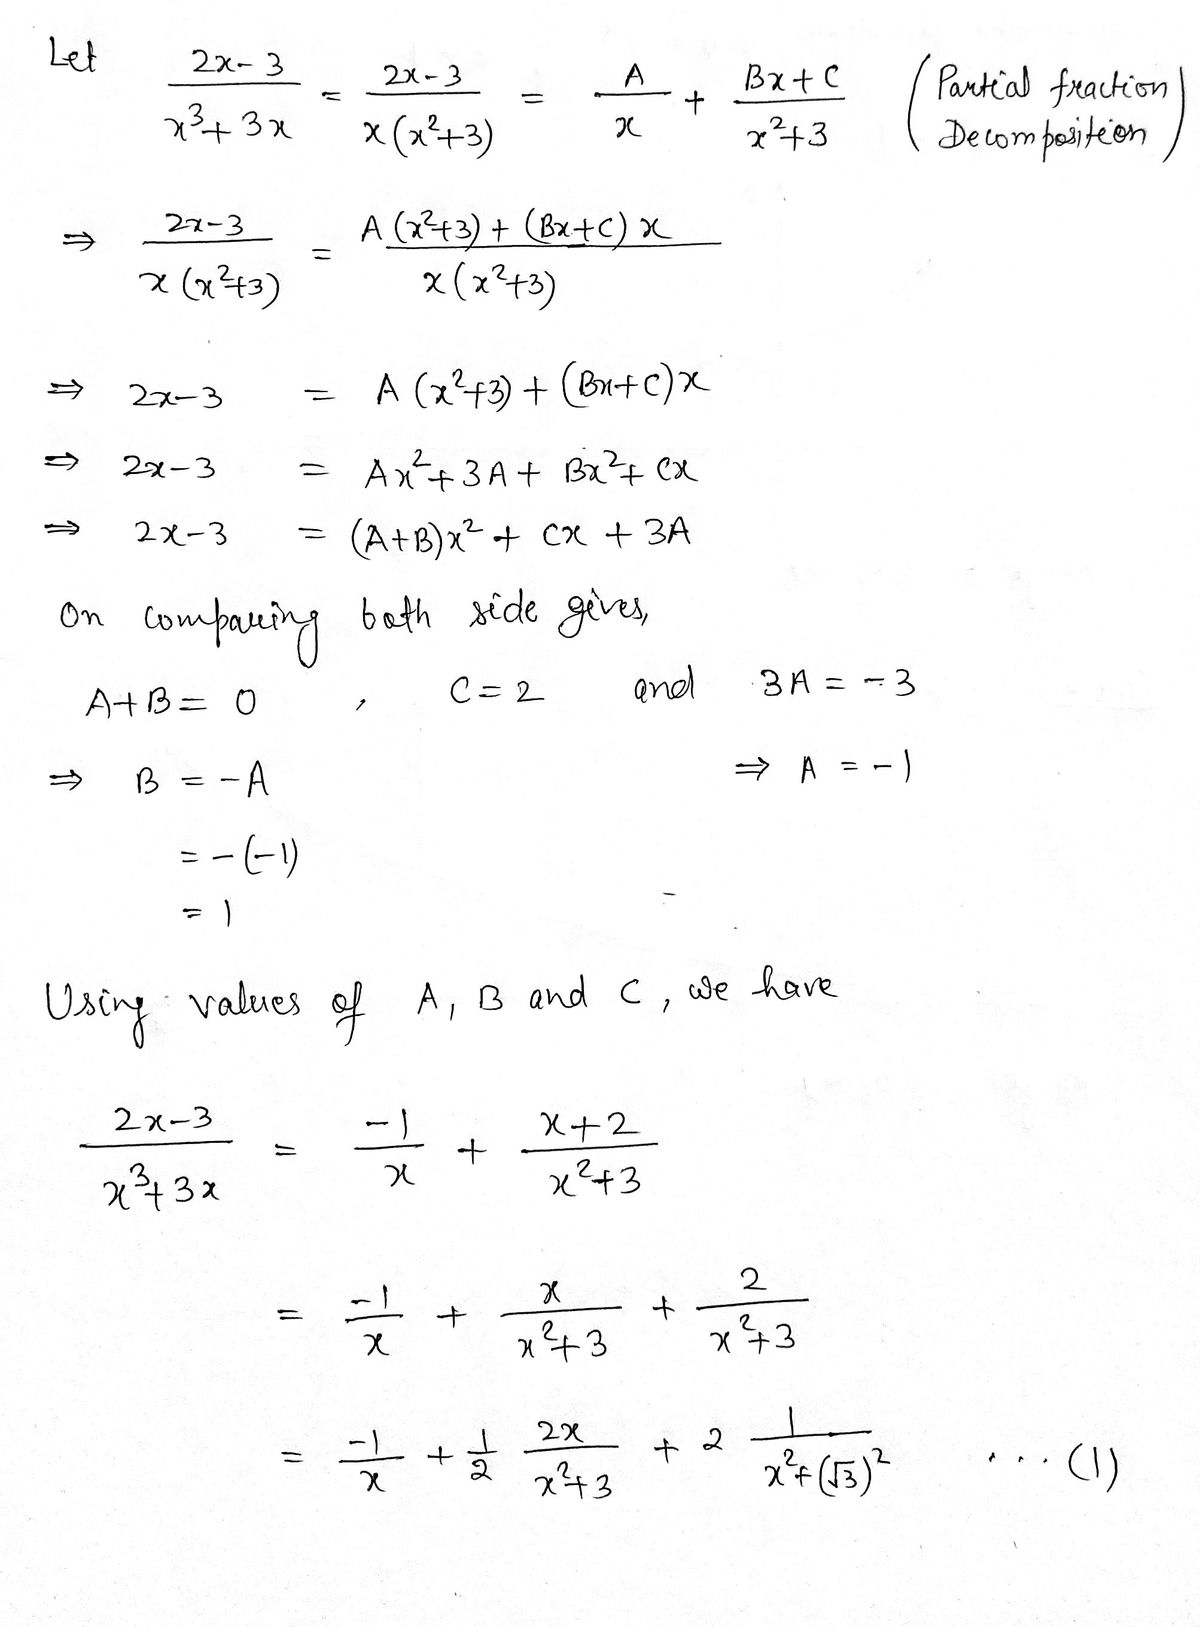 Let (2x-3)/(x³+3x) = (2x-3)/(x(x²+3)) = A/x + (Bx+C)/(x²+3) (Partial fraction Decomposition)
⇒ (2x-3)/(x(x²+3)) = (A(x²+3) + (Bx+C)x)/(x(x²+3))
⇒ 2x-3 = A(x²+3) + (Bx+C)x
⇒ 2x-3 = Ax²+3A+ Bx²+ Cx
⇒ 2x-3 = (A+B)x² + Cx + 3A
On comparing both side gives,
A+B = 0 , C=2 and 3A = -3
⇒ B = -A ⇒ A = -1
= -(-1)
= 1
Using values of A, B and C, we have
(2x-3)/(x³+3x) = -1/x + (x+2)/(x²+3)
= -1/x + x/(x²+3) + 2/(x²+3)
= -1/x + 1/2 2x/(x²+3) + 2 1/(x²+(√3)²) ... (1)